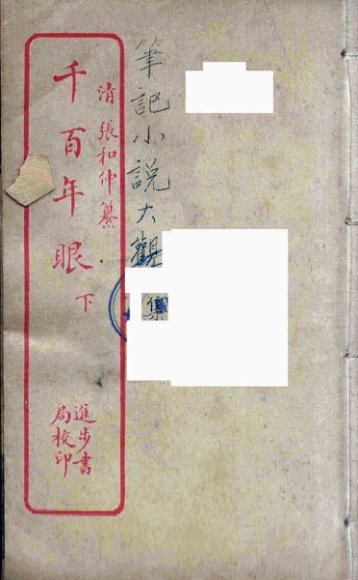 筆記小説大觀
集
清張和仲纂
千百年眼
下
進步書
局校印